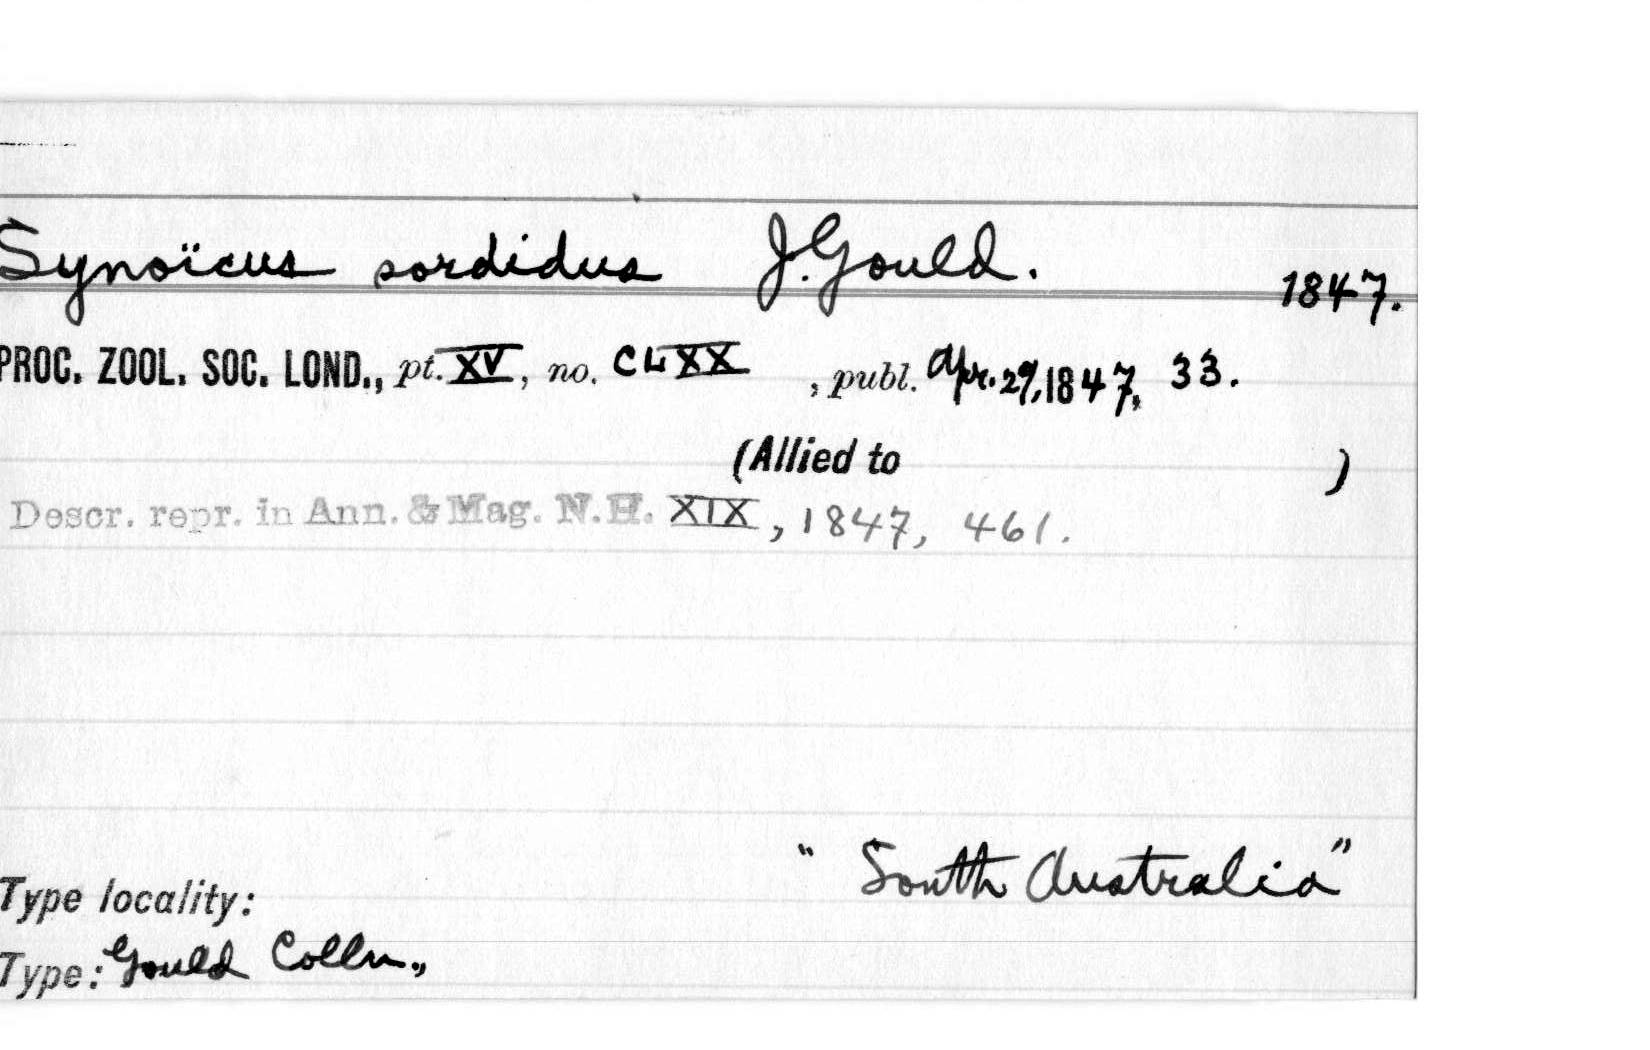 Synoïcus sordidus J. Gould. 1847.
PROC. ZOOL. SOC. LOND., pt. XV, no. CLXX , publ. Apr. 29, 1847, 33.
(Allied to )
Descr. repr. in Ann. & Mag. N.H. XIX, 1847, 461.
Type locality: "South Australia"
Type: Gould Colln.,